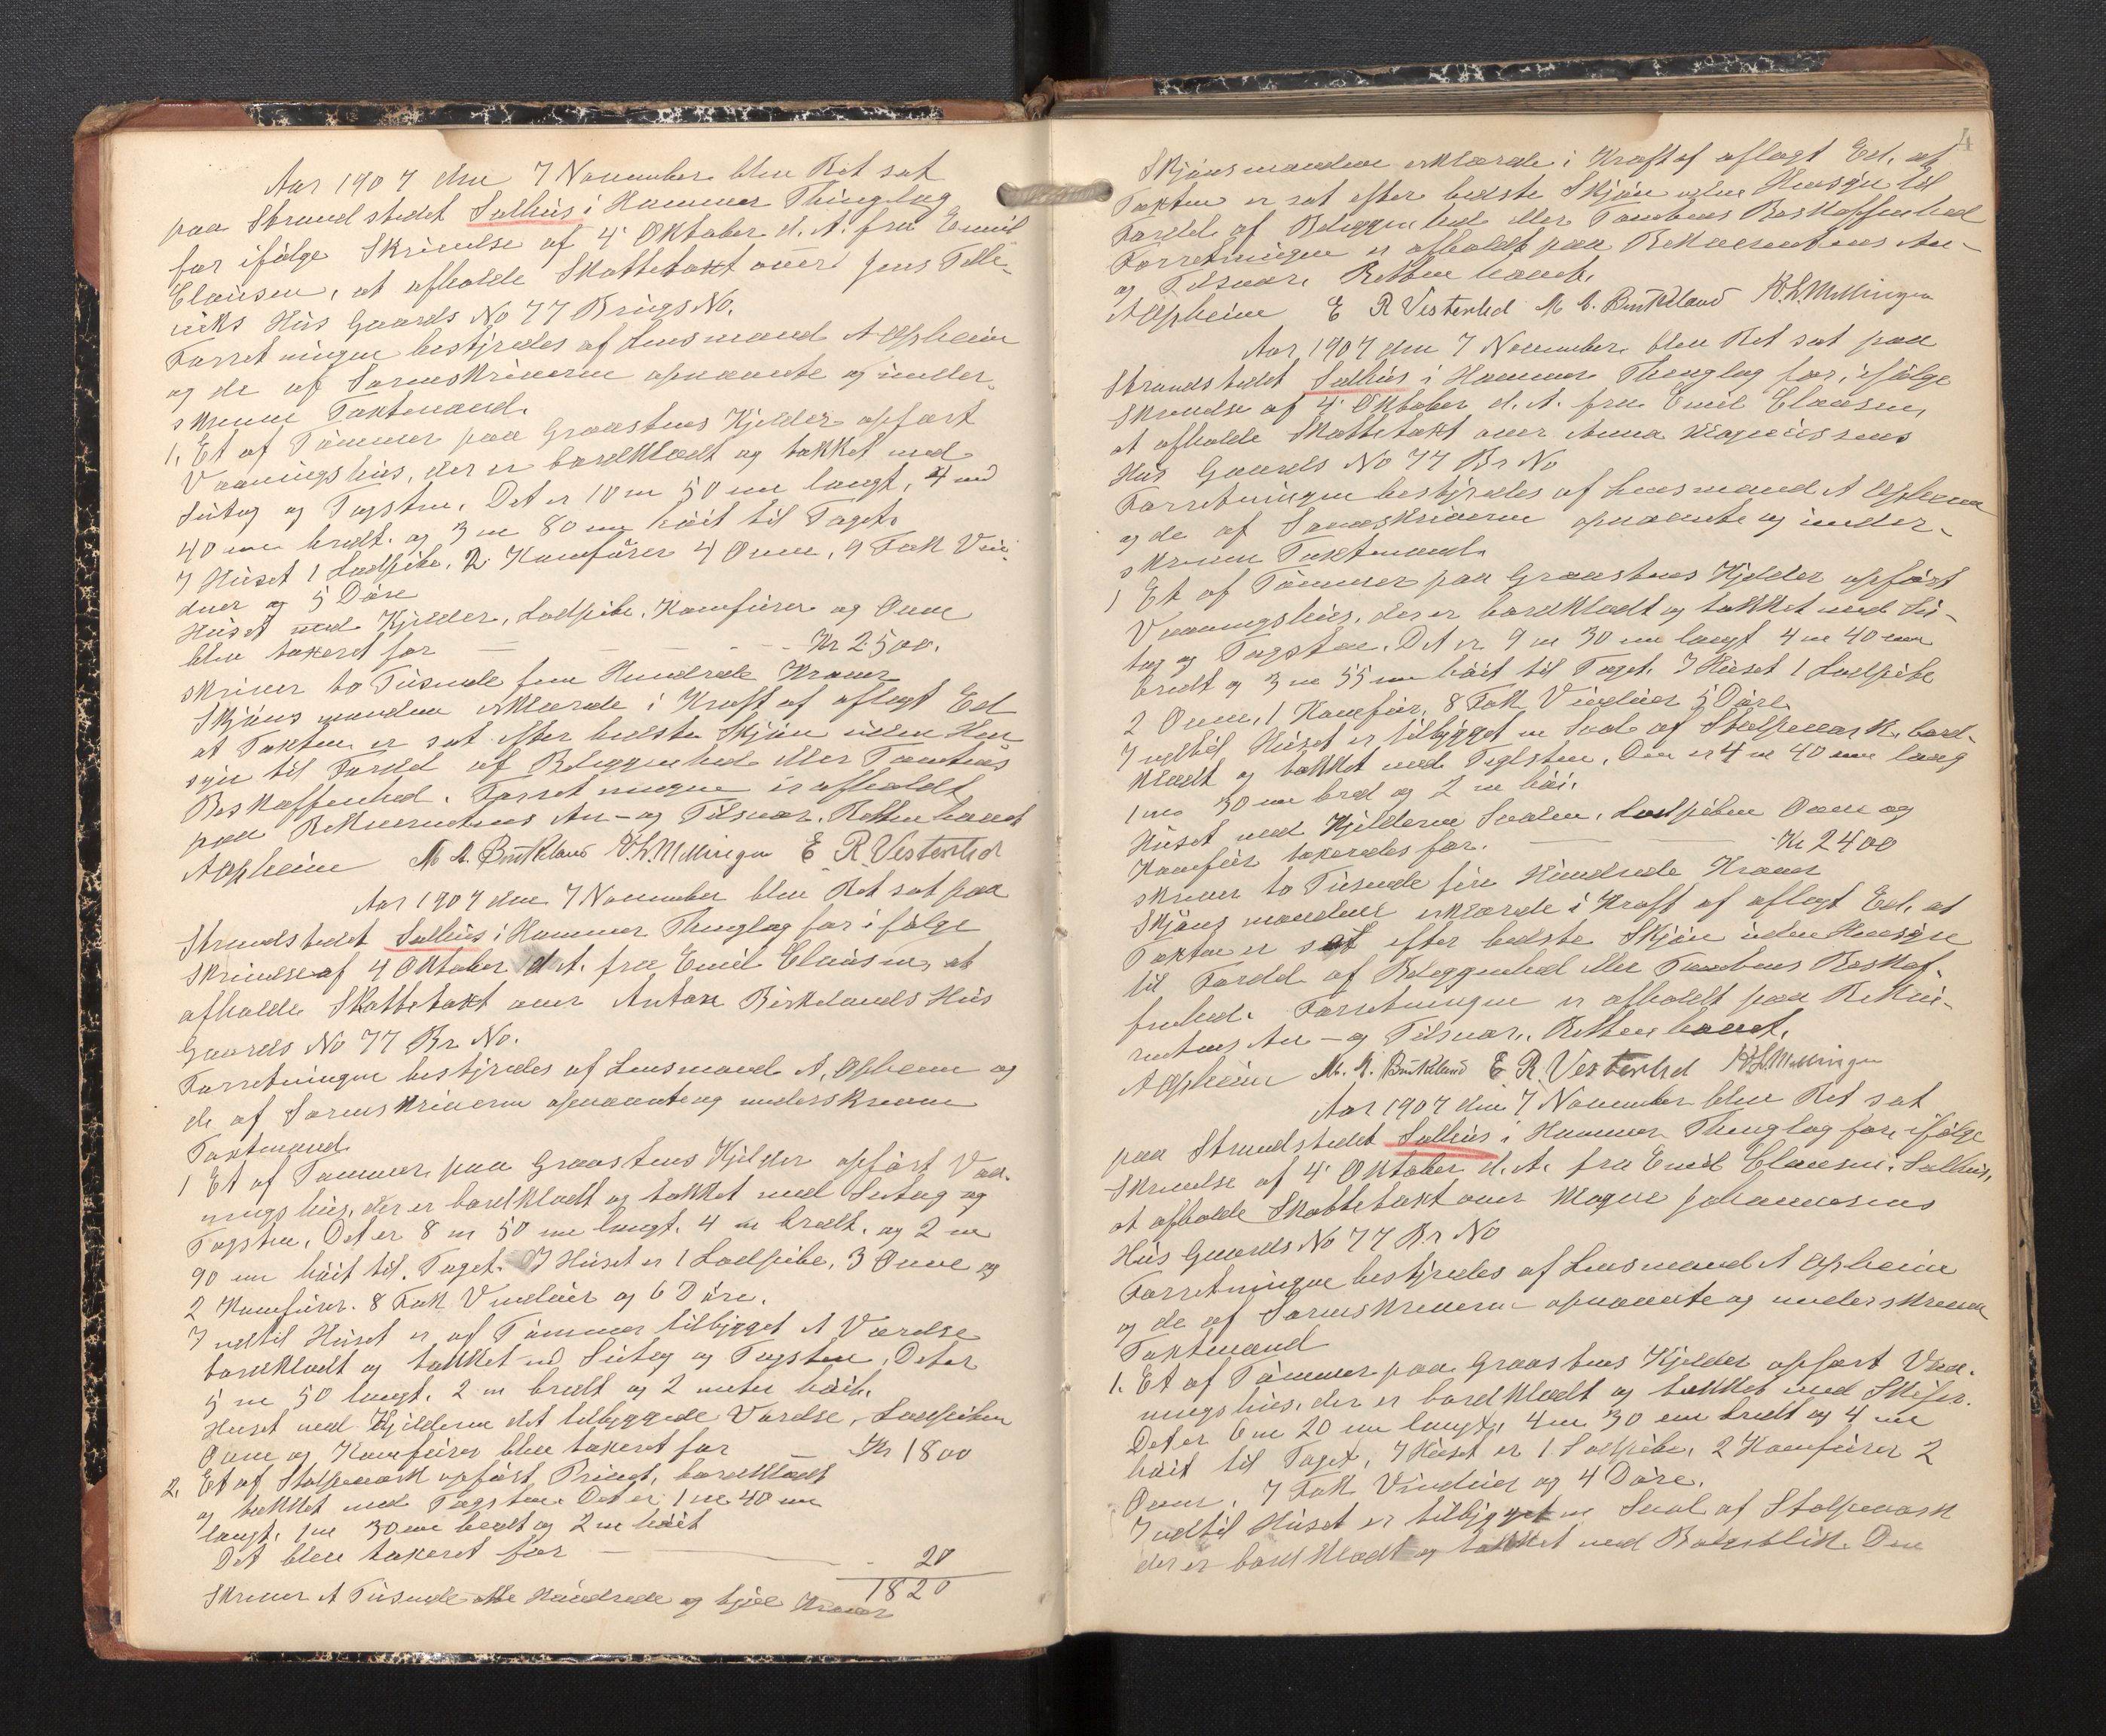 Aar 1907 den 7 November blev Ret sat
paa Strandstedet Salhus i Hammer Thinglag
for ifølge Skrivelse af 4' Oktober d. A. fra Emil
Clausen, at afholde Skattetakt over Jens Telle-
viks Hus Gaards No 77 Brugs No.
Forretningen bestyredes af Lensmand A Opheim
og de af Sorenskriveren opnævnte og under-
skrevne Taxtmænd.
1. Et af Tømmer paa Graastens Kjelder opført
Vaaningshus, der er bordklædt og tækket med
Sutag og Tagsten. Det er 10 m 50 cm langt, 4 m
40 cm bredt. og 3 m 80 cm høit til Taget.
I Huset 1 Ladpibe, 2 Komfürer 4 Ovne, 9 Fak Vin-
duer og 5 Døre
Huset med Kjelder, Ladpibe, Komfürer og Ovne
blev taxeret for — — — — Kr 2500.
skriver to Tusende fem Hundrede Kroner
Skjønsmændene erklærede i Kraft af aflagt Ed
at Taxten er sat efter bedste Skjøn uden Hen
syn til Fordel af Beliggenhed eller Tomtens
Beskaffenhed. Forretningen er afholdt
paa Rekvirentens An- og Tilsvar. Retten hævet
A Opheim M. A. Birkeland H. L. Mellingen E R Vesterlid
Aar 1907 den 7 November blev Ret sat paa
Strandstedet Salhus i Hammer Thinglag for ifølge
Skrivelse af 4 Oktober d. A. fra Emil Clausen, at
afholde Skattetakt over Anton Birkelands Hus
Gaards No 77 Br No.
Forretningen bestyredes af Lensmand A. Opheim og
de af Sorenskriveren opnævnte og underskrevne
Taxtmænd
1 Et af Tømmer paa Graastens Kjelder opført Vaa-
ningshus, der er bordklædt og tækket med Sutag og
Tagsten. Det er 8 m 50 cm langt. 4 m bredt. og 2 m
90 cm høit til Taget. I Huset er 1 Ladpibe, 3 Ovne og
2 Komfürer. 8 Fak Vinduer og 6 Døre.
Indtil Huset er af Tømmer tilbygget et Værelse
bordklædt og tækket m Sutag og Tagsten. Det er
5 m 50 langt. 2 m bredt og 2 meter høit.
Huset med Kjelderen det tilbyggede Værelse, Ladpiben
Ovne og Komfürer blev taxeret for — Kr 1800
2. Et af Stolpeværk opført Privet, bordklædt
og tækket med Tagsten Det er 1 m 40 cm
langt. 1 m 30 cm bredt og 2 m høit
Det blev taxeret for — — 20
1820
Skriver et Tusende otte Hundrede og tyve Kroner
4
Skjønsmændene erklærede i Kraft af aflagt Ed, at
Taxten er sat efter bedste Skjøn uden Hensyn til
Fordel af Beliggenhed eller Tomtens Beskaffenhed
Forretningen er afholdt paa Rekvirentens An-
og Tilsvar. Retten hævet.
A Opheim E R Vesterlid M A. Birkeland H. L. Mellingen
Aar 1907 den 7 November blev Ret sat paa
Strandstedet Salhus i Hammer Thinglag for, ifølge
Skrivelse af 4' Oktober d. A. fra Emil Clausen,
at afholde Skattetakt over Anna Magnussens
Hus Gaards No 77 Br No
Forretningen bestyredes af Lensmand A Opheim
og de af Sorenskriveren opnævnte og under-
skrevne Taxtmænd.
1 Et af Tømmer paa Graastens Kjelder opført
Vaaningshus, der er bordklædt og tækket med Su-
tag og Tagsten. Det er 9 m 30 cm langt 4 m 40 cm
bredt og 3 m 55 cm høit til Taget. I Huset 1 Ladpibe
2 Ovne, 1 Komfür, 8 Fak Vinduer 5 Døre.
Indtil Huset er tilbygget en Sval af Stolpeværk, bord-
klædt og tækket med Teglsten. Den er 4 m 40 cm lang
1 m 30 cm bred og 2 m høi.
Huset med Kjelderen Svalen, Ladpiben Ovne og
Komfür taxeredes for. — — Kr 2400
skriver to Tusende fire Hundrede Kroner
Skjønsmændene erklærede i Kraft af aflagt Ed, at
Taxten er sat efter bedste Skjøn uden Hensyn
til Fordel af Beliggenhed eller Tomtens Beskaf-
fenhed. Forretningen er afholdt paa Rekvi-
rentens An- og Tilsvar. Retten hævet.
A Opheim M. A. Birkeland E R. Vesterlid H L. Mellingen
Aar 1907 den 7 November blev Ret sat
paa Strandstedet Salhus i Hammer Thinglag for, ifølge
Skrivelse af 4' Oktober d. A. fra Emil Clausen, Salhus,
at afholde Skattetakt over Mogne Johannesens
Hus Gaards No 77 Br No
Forretningen bestyredes af Lensmand A Opheim
og de af Sorenskriveren opnævnte og underskrevne
Taxtmænd
1. Et af Tømmer paa Graastens Kjelder opført Vaa-
ningshus, der er bordklædt og tækket med Skifer.
Det er 6 m 20 cm langt, 4 m 30 cm bredt og 4 m
høit til Taget, I Huset er 1 Ladpibe, 2 Komfürer 2
Ovne, 7 Fak Vinduer og 4 Døre.
Indtil Huset er tilbygget en Sval af Stolpeværk
der er bordklædt og tækket med Bølgeblik. Den